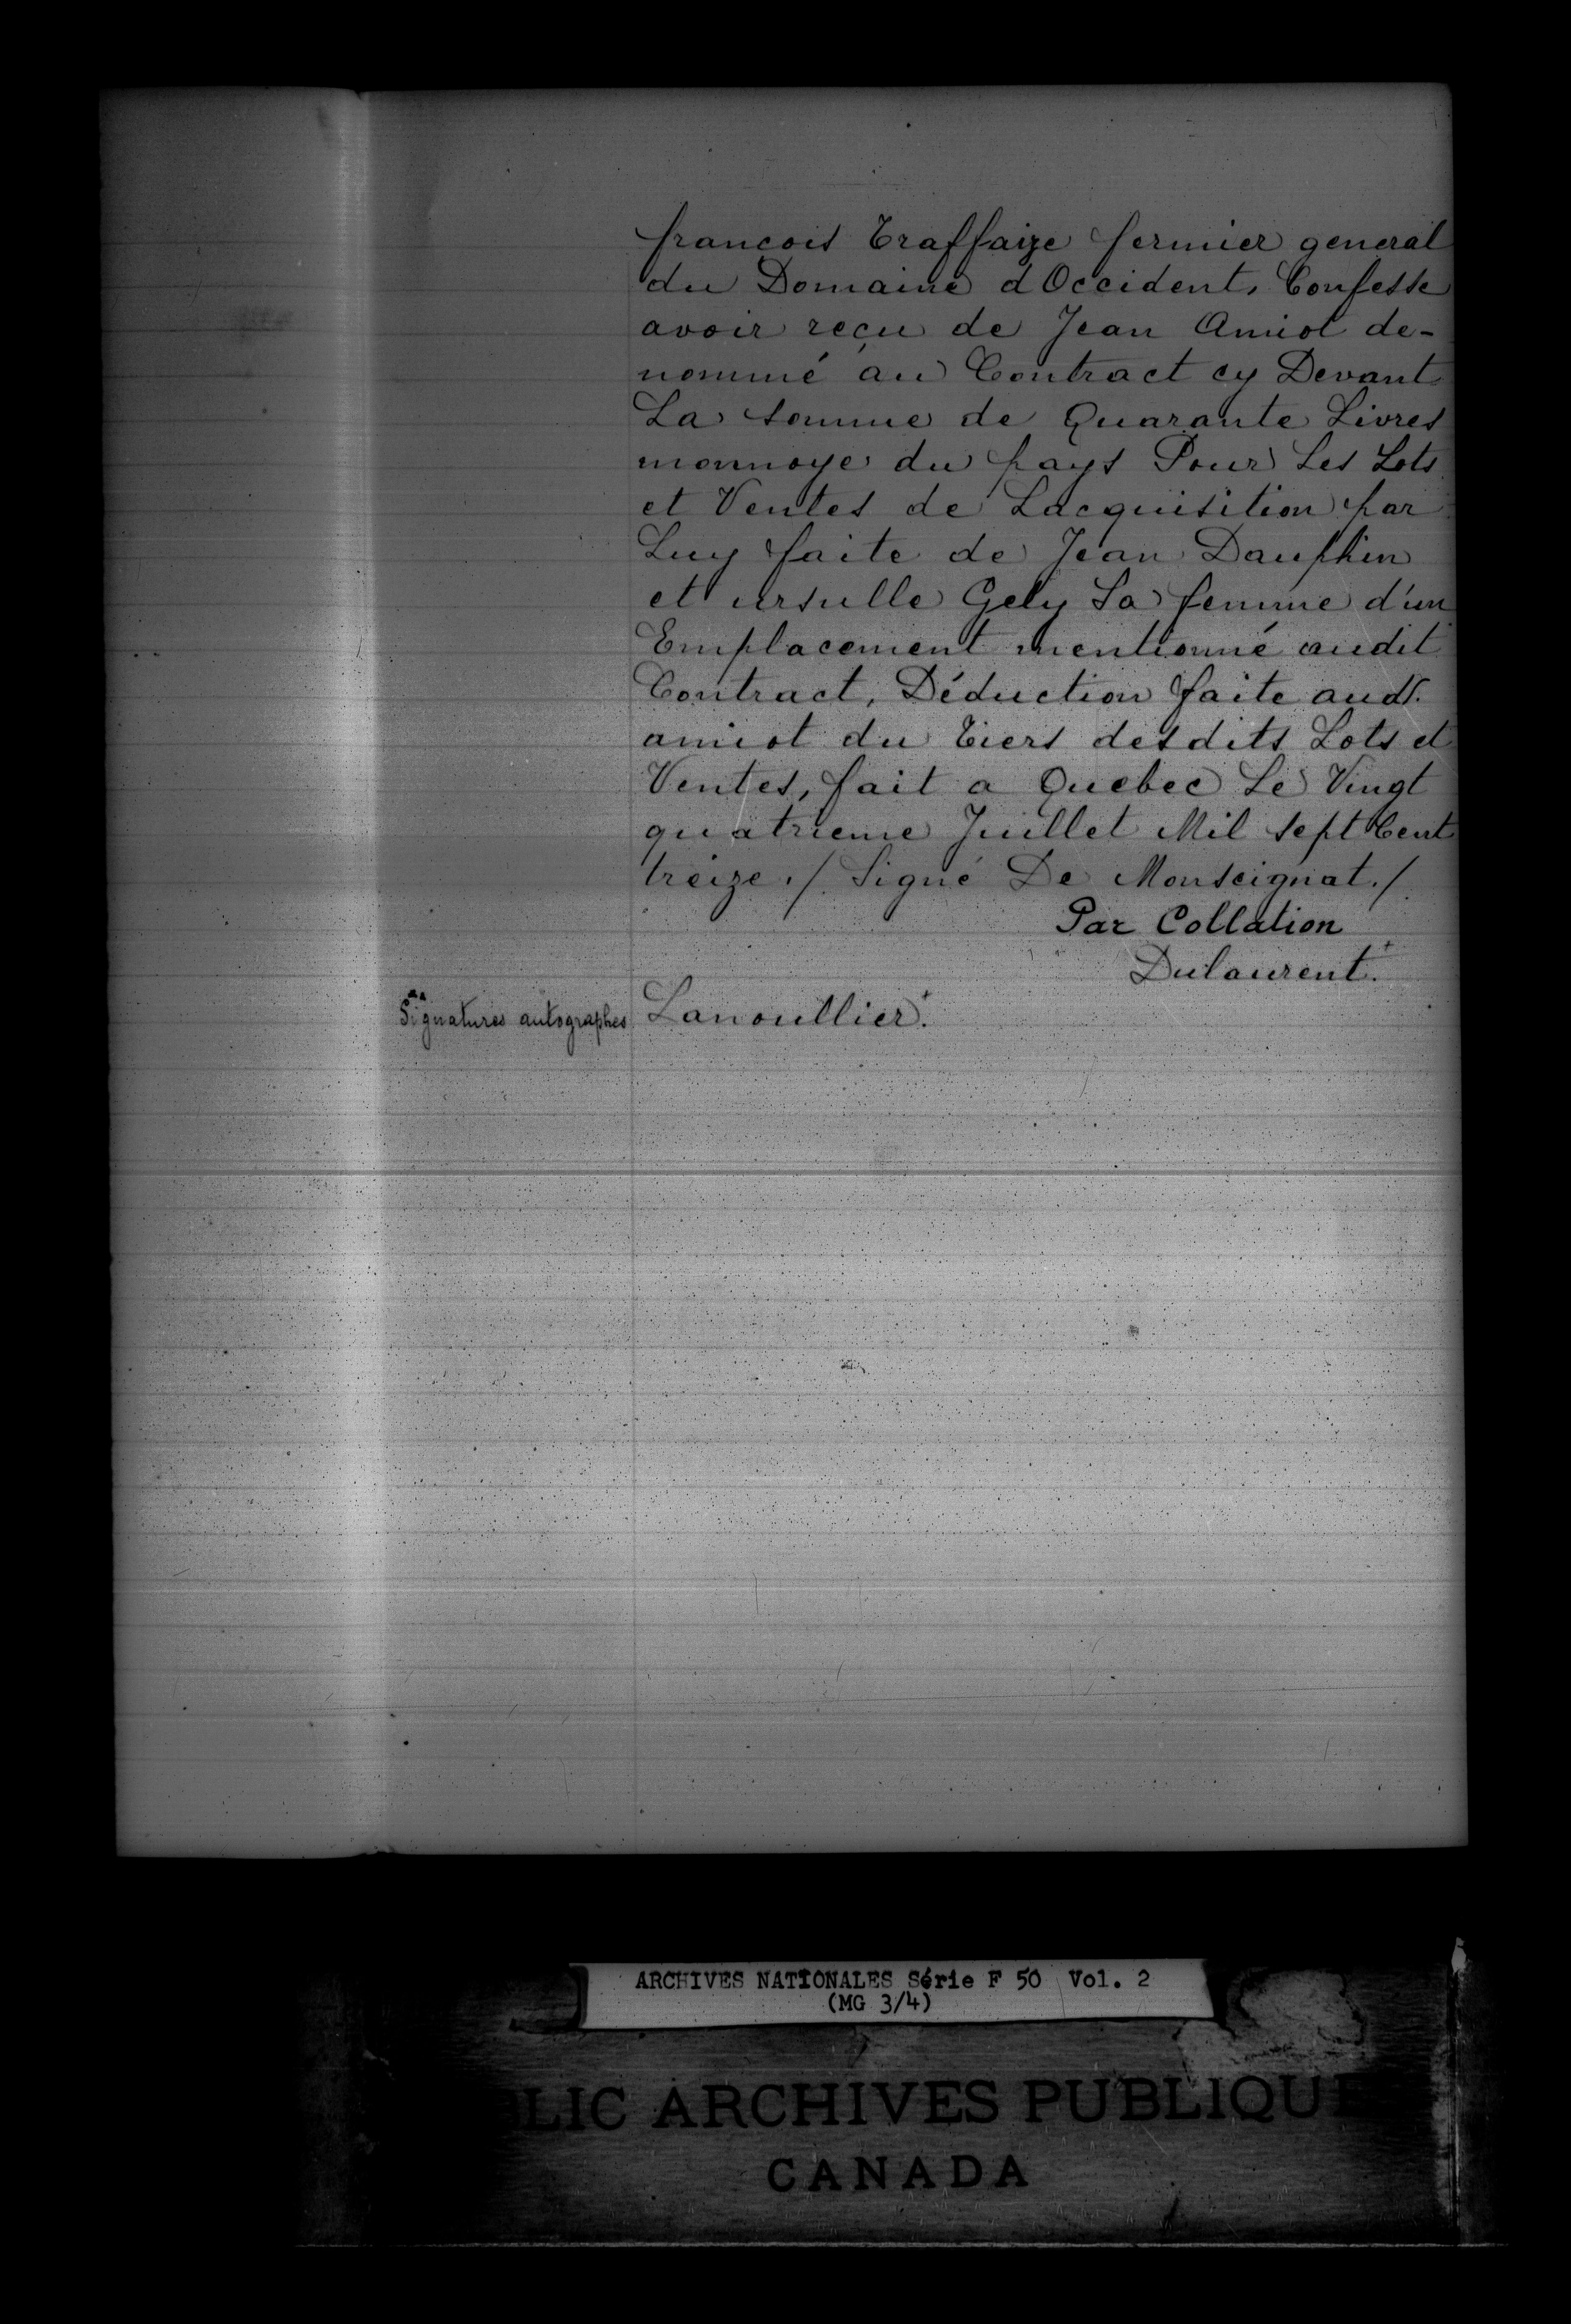 françois Traffaize fermier general
du Domaine d Occident, Confesse
avoir reçu de Jean Amiot de-
nommé au Contract cy Devant
La somme de Quarante Livres
monnoye du pays Pour Les Lots
et Ventes de Lacquisition par
Luy faite de Jean Dauphin
et ursulle Gely Sa femme d'un
Emplacement mentionné audit
Contract, Déduction faite audt.
amiot du Tiers desdits Lots et
Ventes, fait a Quebec Le Vingt
quatrieme Juillet Mil sept Cent
treize ./. Signé De Monseignat ./.
Par Collation
Dulaurent.+
Signatures autographes Lanoullier.+
ARCHIVES NATIONALES Série F 50 Vol. 2
(MG 3/4)
BLIC ARCHIVES PUBLIQUE
CANADA